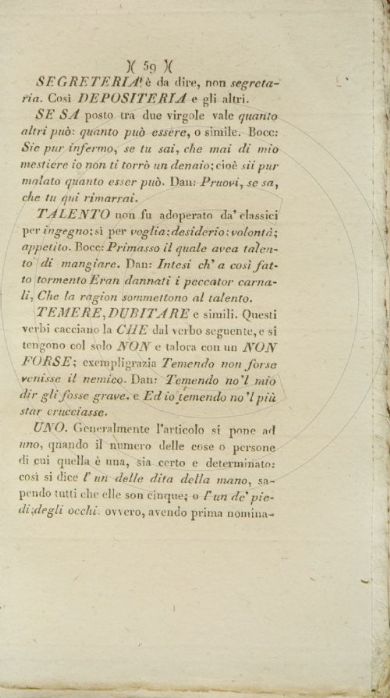 )( 59 )(
SEGRETERIA! è da dire, non segreta-
ria. Così DEPOSITERIA e gli altri.
SE SA posto tra due virgole vale quanto
altri può: quanto può essere, o simile. Bocc:
Sie pur infermo, se tu sai, che mai di mio
mestiere io non ti torrò un denaio; cioè sii pur
malato quanto esser può. Dan: Pruovi, se sa,
che tu qui rimarrai.
TALENTO non fu adoperato da' classici
per ingegno; sì per voglia: desiderio: volontà;
appetito. Bocc: Primasso il quale avea talen-
to di mangiare. Dan: Intesi ch' a così fat-
to tormento Eran dannati i peccator carna-
li, Che la ragion sommettono al talento.
TEMERE, DUBITARE e simili. Questi
verbi cacciano la CHE dal verbo seguente, e si
tengono col solo NON e talora con un NON
FORSE; exempligrazia Temendo non forse
venisse il nemico. Dan: Temendo no 'l mio
dir gli fosse grave. e Ed io temendo no 'l più
star crucciasse.
UNO. Generalmente l'articolo si pone ad
uno, quando il numero delle cose o persone
di cui quella è una, sia certo e determinato:
così si dice l' un delle dita della mano, sa-
pendo tutti che elle son cinque; o l' un de' pie-
di; degli occhi. ovvero, avendo prima nomina-